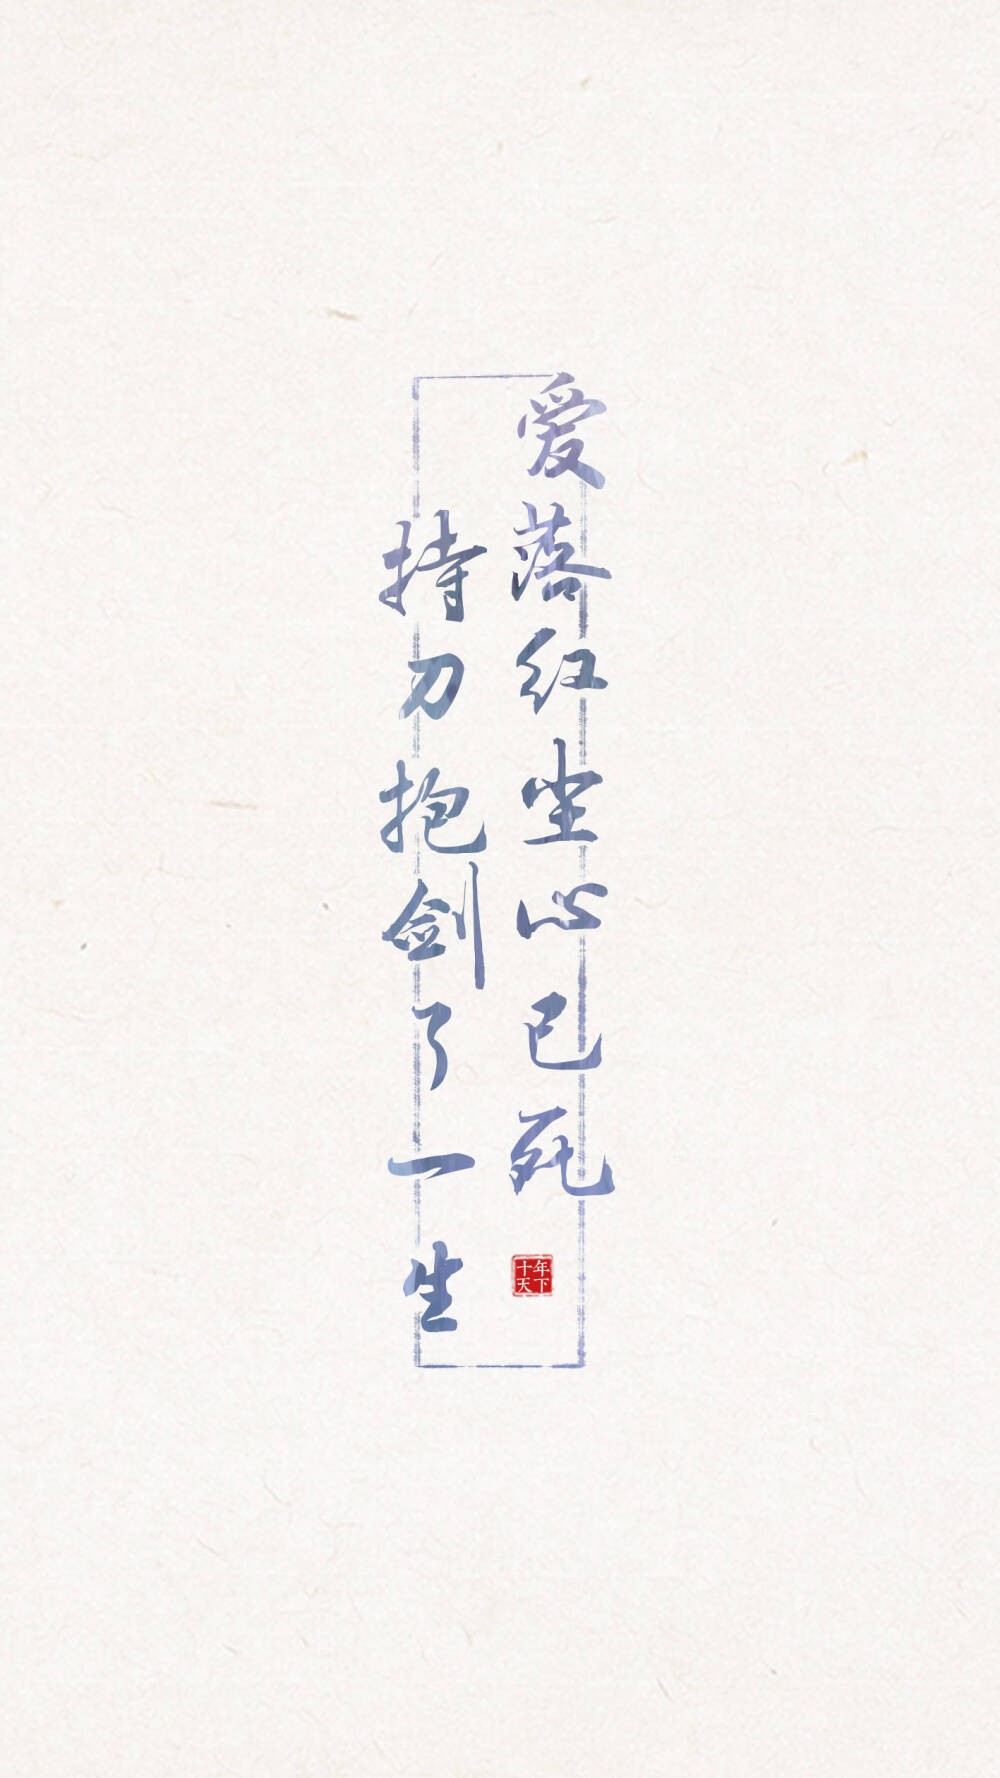 爱落红尘心已死
持刀抱剑了一生
十年
天下